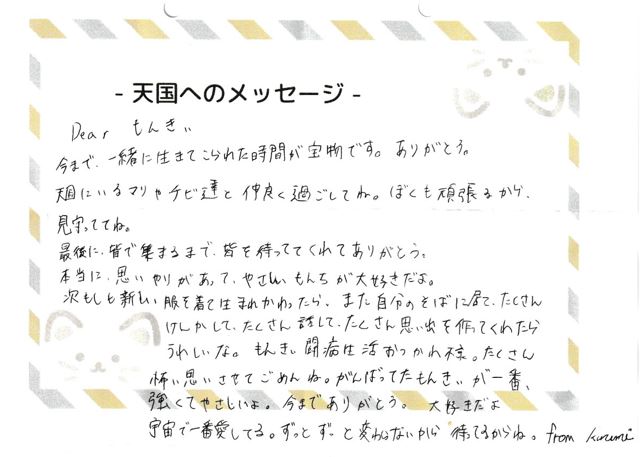 - 天国へのメッセージ -
Dear もんきぃ
今まで、一緒に生きてこられた時間が宝物です。ありがとう。
天国にいるマリやチビ達と仲良く過ごしてね。ぼくも頑張るから、
見守っててね。
最後に、皆で集まるまで、皆を待っててくれてありがとう。
本当に、思いやりがあって、やさしいもんちが大好きだよ。
次もしも新しい服を着て生まれかわったら、また自分のそばに居て、たくさん
けんかして、たくさん話して、たくさん思い出を作ってくれたら
うれしいな。もんきぃ闘病生活おつかれ様。たくさん
怖い思いさせてごめんね。がんばってたもんきぃが一番、
強くてやさしいよ。今までありがとう。大好きだよ
宇宙で一番愛してる。ずっとずっと変わらないから待ってるからね。from